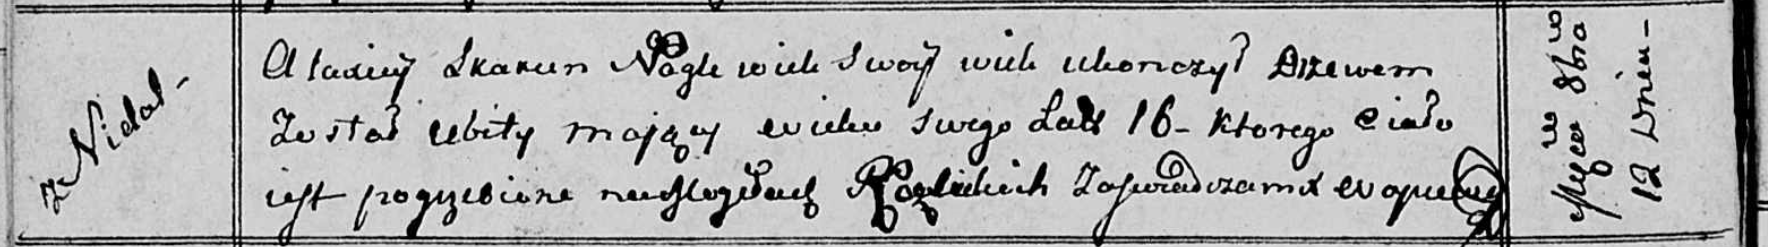 z Nidal-
Alaxiey Skakun Nagle wiek swoy wiek ukonczył Drzewem
Został ubity maiący wieku swego Lat 16- ktorego Ciało
iest pogrzebione Zaswiadczam
8bra
12 Dnia-